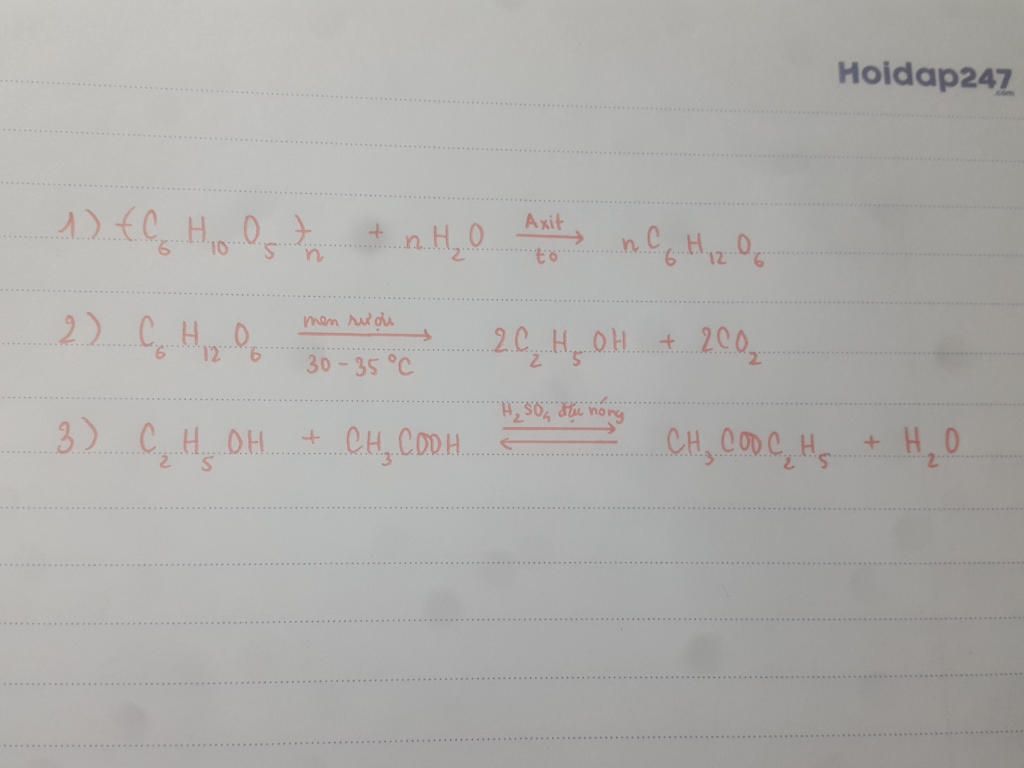 Hoidap247
.com
1) (C₆H₁₀O₅)n + nH₂O Axit → to nC₆H₁₂O₆
2) C₆H₁₂O₆ men rượu → 30-35°C 2C₂H₅OH + 2CO₂
3) C₂H₅OH + CH₃COOH H₂SO₄ đặc nóng ⇌ CH₃COOC₂H₅ + H₂O